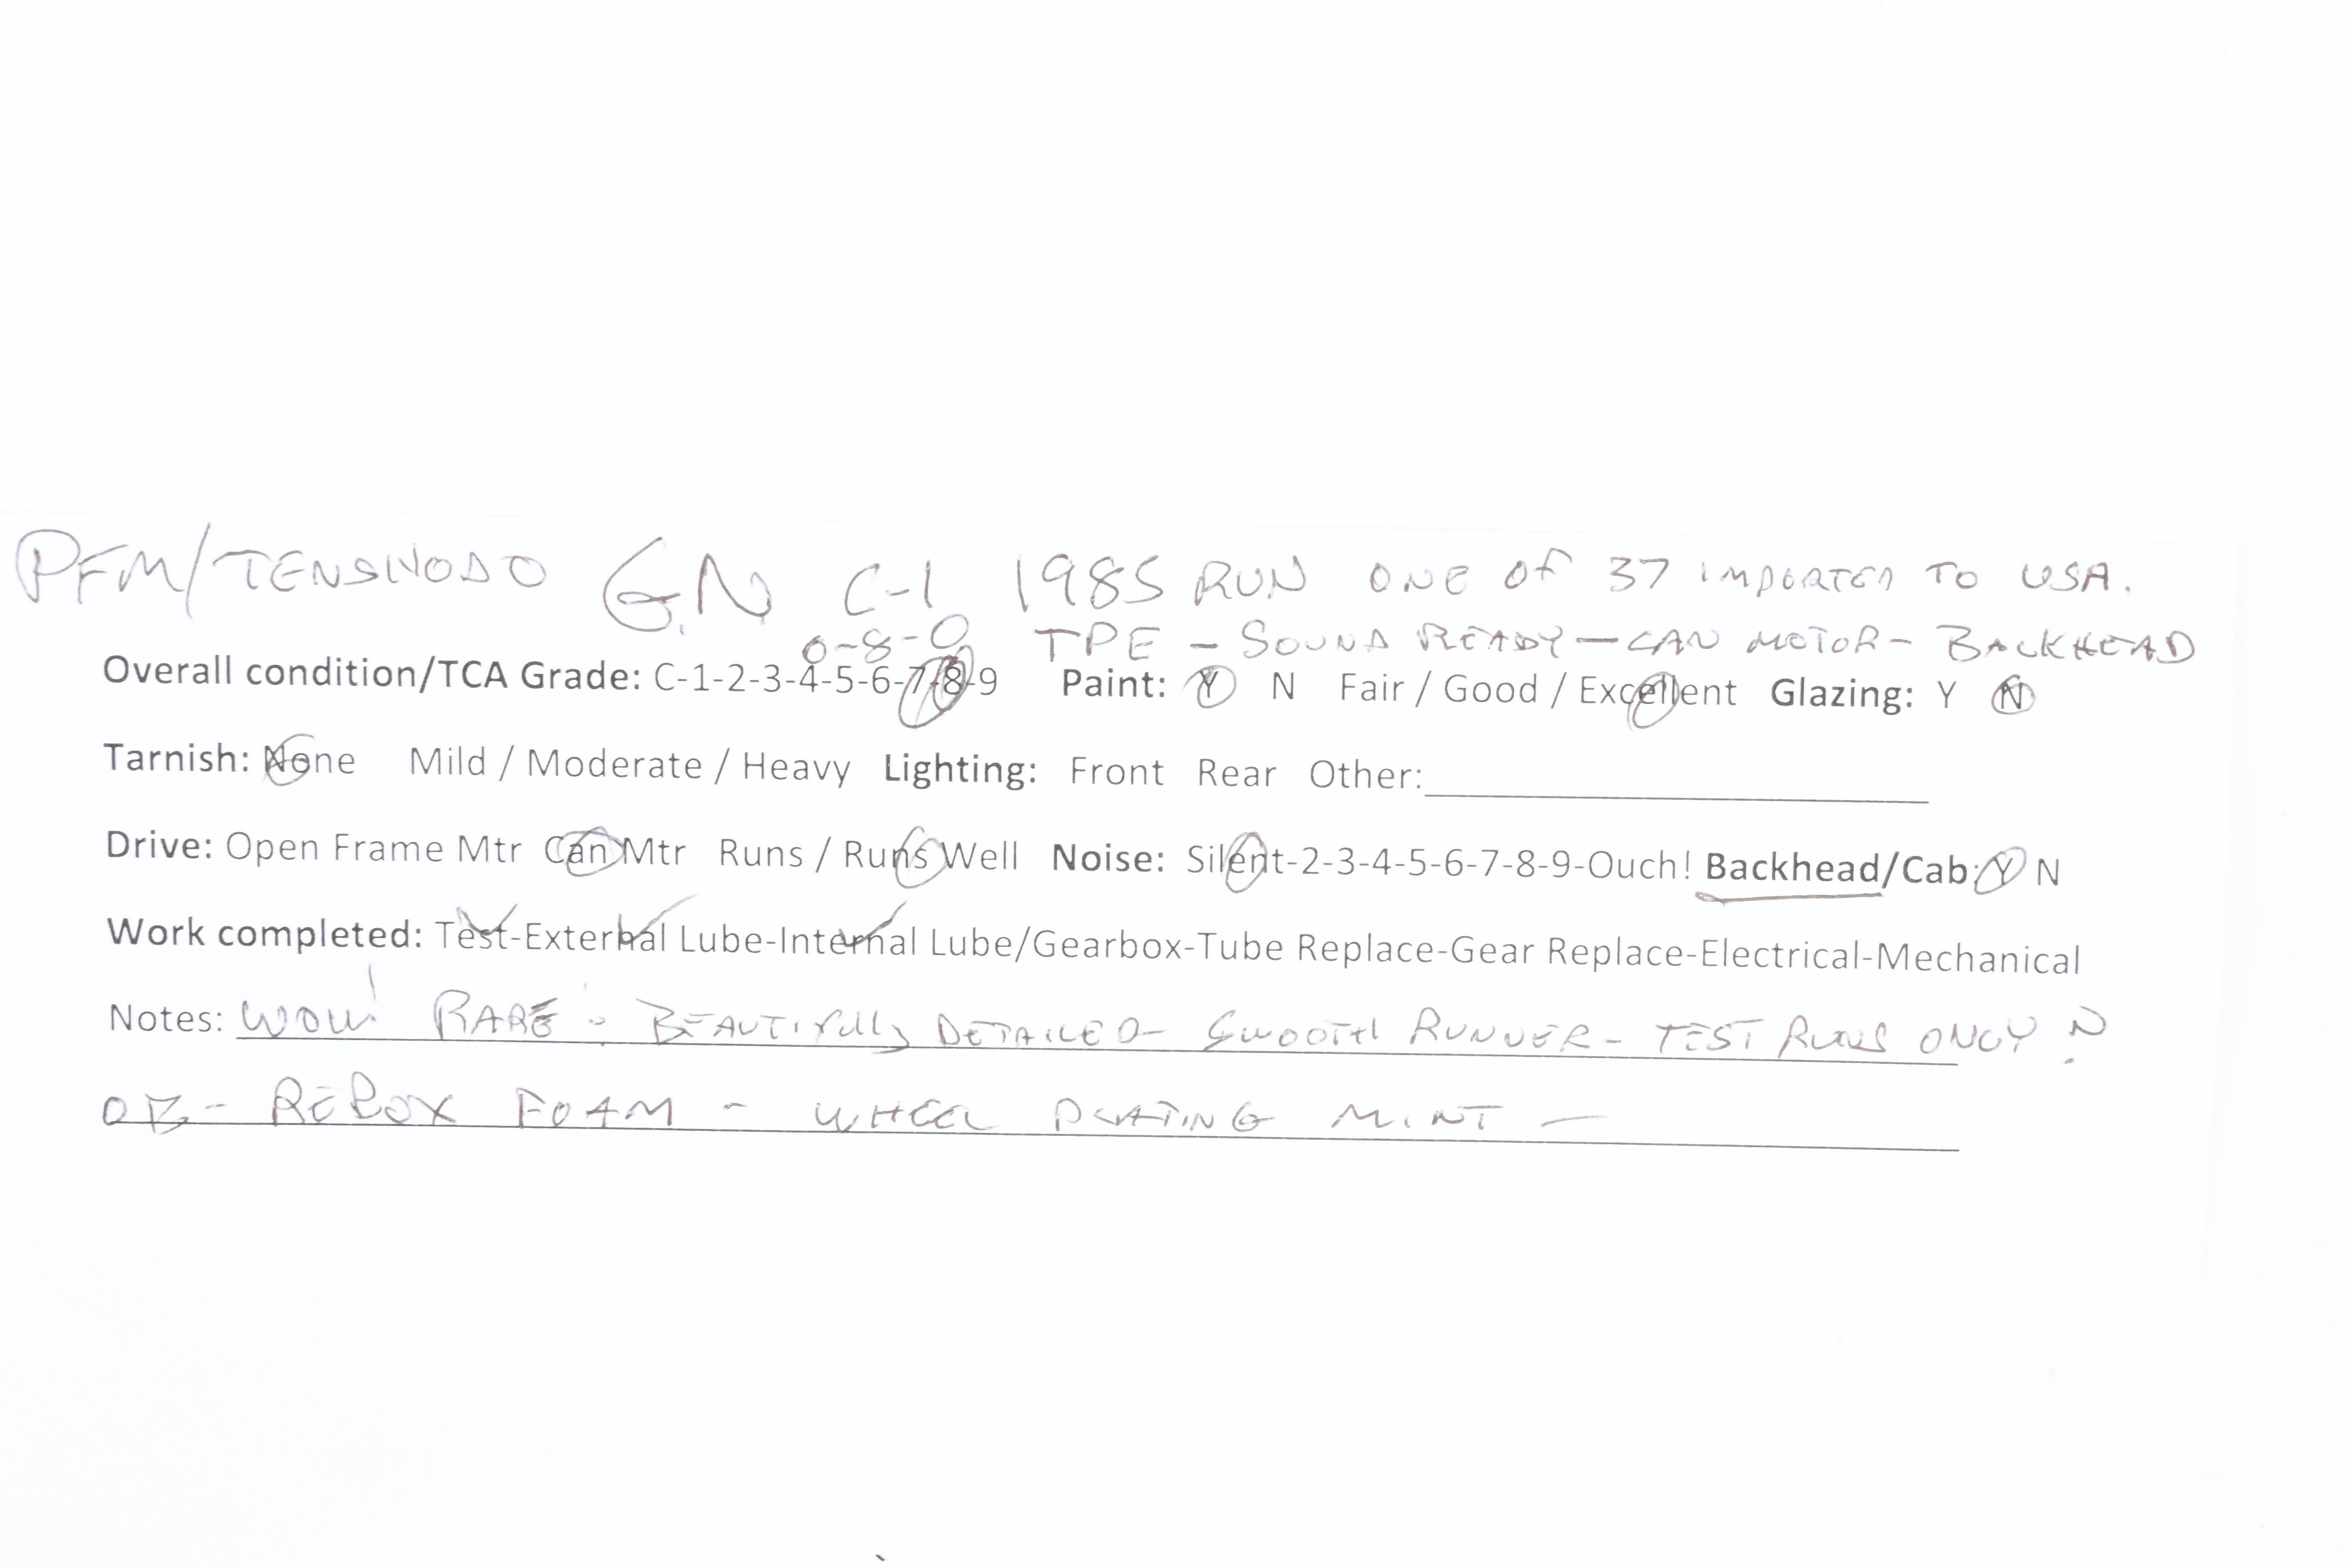 PFM/TENSHODO G.N C-1 1985 RUN ONE OF 37 IMPORTED TO USA.
0-8-0 TPE - SOUND READY - CAN MOTOR - BACKHEAD
Overall condition/TCA Grade: C-1-2-3-4-5-6-7-8-9 Paint: Y N Fair / Good / Excellent Glazing: Y N
Tarnish: None Mild / Moderate / Heavy Lighting: Front Rear Other:
Drive: Open Frame Mtr Can Mtr Runs / Runs Well Noise: Silent-2-3-4-5-6-7-8-9-Ouch! Backhead/Cab: Y N
Work completed: Test-External Lube-Internal Lube/Gearbox-Tube Replace-Gear Replace-Electrical-Mechanical
Notes: WOW! RARE - BEAUTIFULLY DETAILED - SMOOTH RUNNER - TEST RUNS ONLY
OB - REBOX FOAM - WHEEL PLATING MINT -